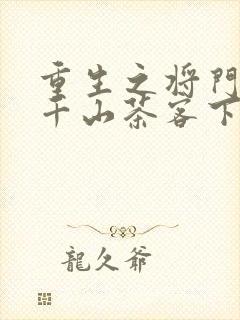 重生之将門
千山茶客下
龍久爺